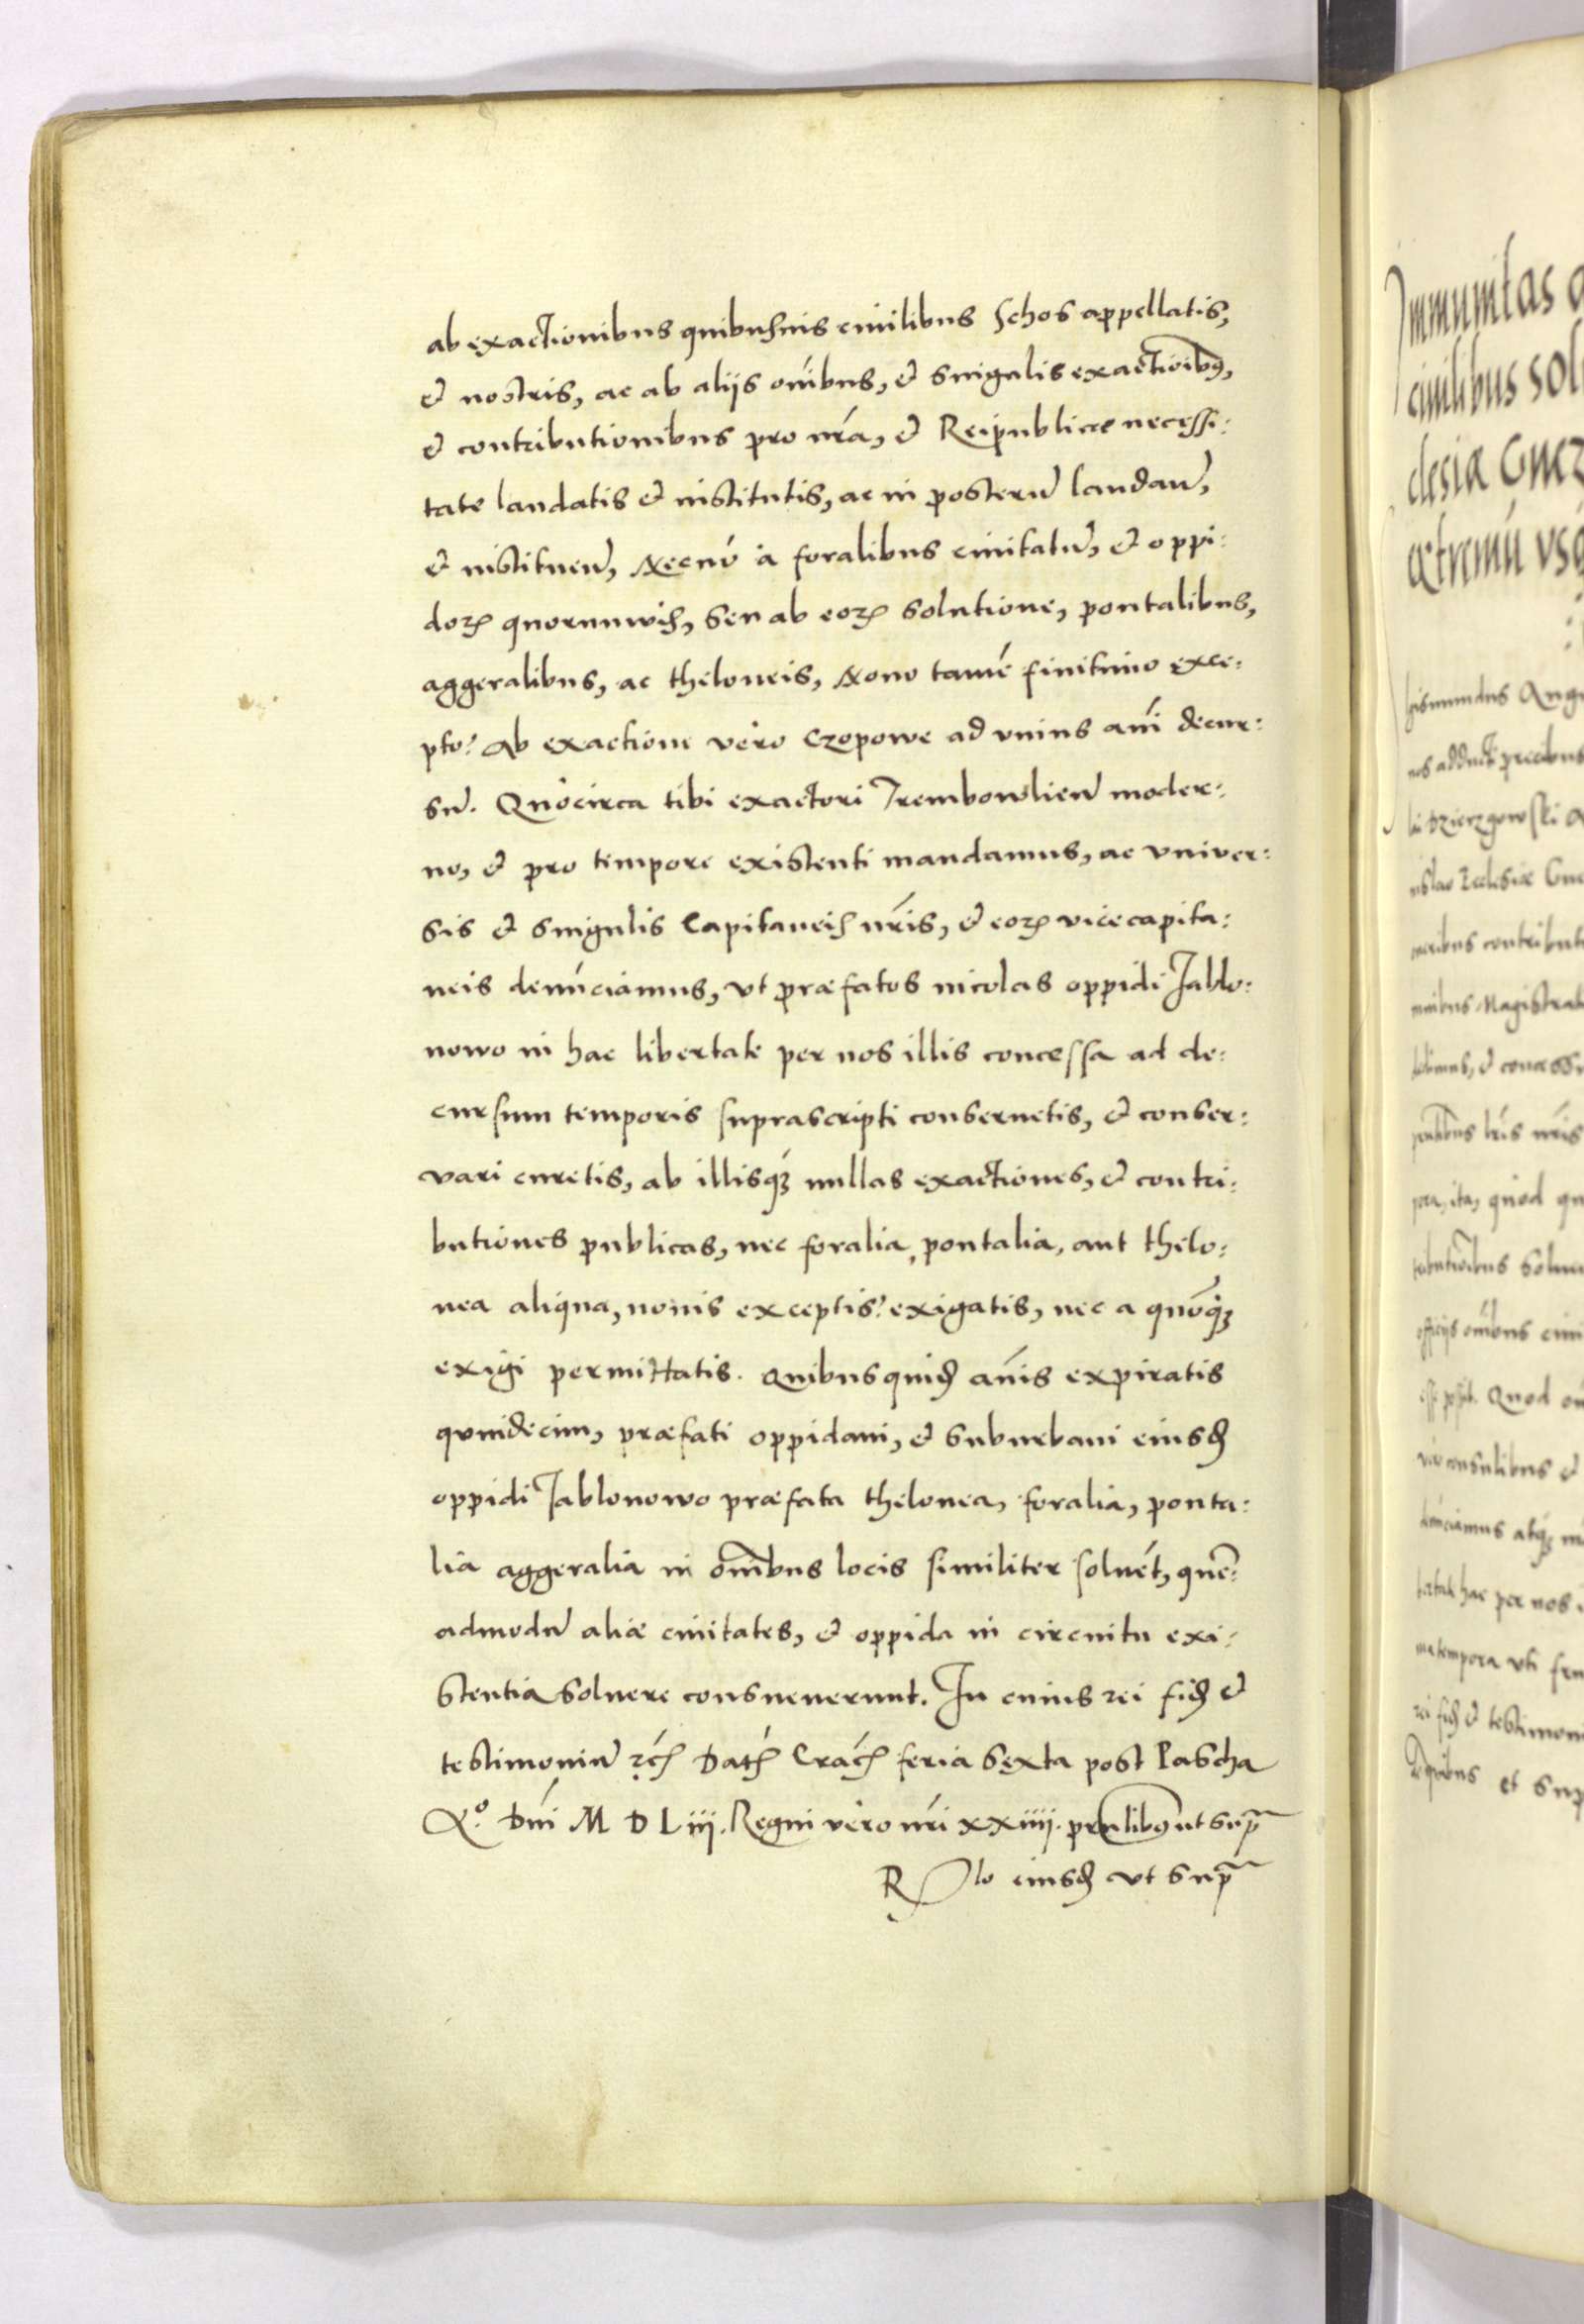 ab exactionibus quibusuis ciuilibus Schos appellatis,
et nostris, ac ab aliis oībus, et singulis exactioibꝰ,
et contributionibus pro nrā, et Reipublicæ necessi:
tate laudatis et institutis, ac in posterū laudan̄,
et instituen̄, Necnō à foralibus ciuitatū, et oppi:
dorꝫ quorumuis, seu ab eorꝫ solutione, pontalibus,
aggeralibus, ac theloneis, Nouo tamē finitimo exce:
pto: Ab exactione vero Czopowe ad vnius anī decur:
sū. Quocirca tibi exactori Trembowlien̄ moder:
no, et pro tempore existenti mandamus, ac vniuer:
sis et singulis Capitaneis nrīs, et eorꝫ vicecapita:
neis denūciamus, vt præfatos incolas oppidi Jablo:
nowo in hac libertate per nos illis concessa ad de:
cursum temporis suprascripti conseruetis, et conser:
vari curetis, ab illisqꝫ nullas exactiones, et contri:
butiones publicas, nec foralia, pontalia, aut thelo:
nea aliqua, nouis exceptis: exigatis, nec a quōqꝫ
exigi permittatis. Quibus quidē anīs expiratis
quindecim, præfati oppidani, et suburbani eiusdē
oppidi Jablonowo præfata thelonea, foralia, ponta:
lia aggeralia in omībus locis similiter soluēt, quē:
admodū aliæ ciuitates, et oppida in circuitu exi:
stentia soluere consueuerunt. In cuius rei fidē et
testimoniū ꝛc̄ Dat̄ Crac̄ feria sexta post Pascha
Aº. Dnī M D L iij. Regni vero nrī xxiiij. prn̄libꝰ ut supr̄
R lo eiusdē vt supr̄
Immunitas
ciuilibus sol
clesiæ Gnez
extremū vsq
nos adduct precibus
li Dzierzgowski A
nislao Ecclesiæ Gne
neribus contributi
nibus Magistrat
pora, ita, quod qu
tributiōibus solue
officiis oībus ciui
esse possit. Quod
viceconsulibus et
denūciamus atqꝫ
tertate hac per nos
ma tempora vti fru
rei fidē et testimon
et sup